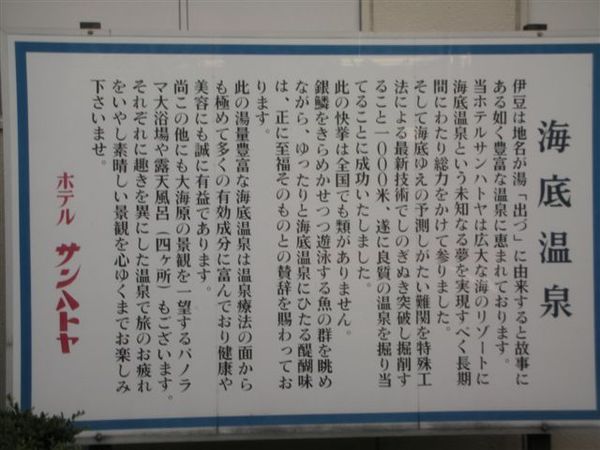 海底温泉
伊豆は地名が湯「出づ」に由来すると故事に
ある如く豊富な温泉に恵まれております。
当ホテルサンハトヤは広大な海のリゾートに
海底温泉という未知なる夢を実現すべく長期
間にわたり総力をかけて参りました。
そして海底ゆえの予測しがたい難関を特殊工
法による最新技術でしのぎぬき突破し掘削す
ること一〇〇〇米、遂に良質の温泉を掘り当
てることに成功いたしました。
此の快挙は全国でも類がありません。
銀鱗をきらめかせつつ遊泳する魚の群を眺め
ながら、ゆったりと海底温泉にひたる醍醐味
は、正に至福そのものとの賛辞を賜わってお
ります。
此の湯量豊富な海底温泉は温泉療法の面から
も極めて多くの有効成分に富んでおり健康や
美容にも誠に有益であります。
尚この他にも大海原の景観を一望するパノラ
マ大浴場や露天風呂（四ヶ所）もございます。
それぞれに趣きを異にした温泉で旅のお疲れ
をいやし素晴しい景観を心ゆくまでお楽しみ
下さいませ。
ホテル サンハトヤ